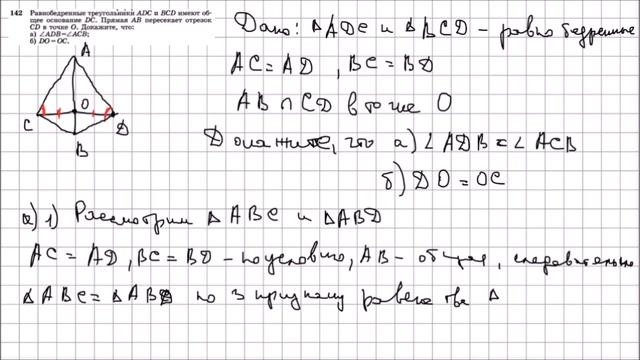 142 Равнобедренные треугольники ADC и BCD имеют об-
щее основание DC. Прямая AB пересекает отрезок
CD в точке O. Докажите, что:
а) ∠ADB=∠ACB;
б) DO=OC.
A
C
O
D
B
Дано: △ADC и △BCD - равнобедренные
AC = AD , BC = BD
AB ∩ CD в точке O
Докажите, что а) ∠ADB = ∠ACB
б) DO = OC
а) 1) Рассмотрим △ABC и △ABD
AC = AD, BC = BD - по условию, AB - общая, следовательно
△ABC = △ABD по 3 признаку равенства △